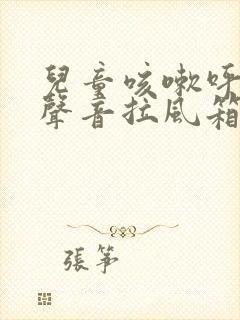 兒童咳嗽呼
聲音拉風箱
張筝